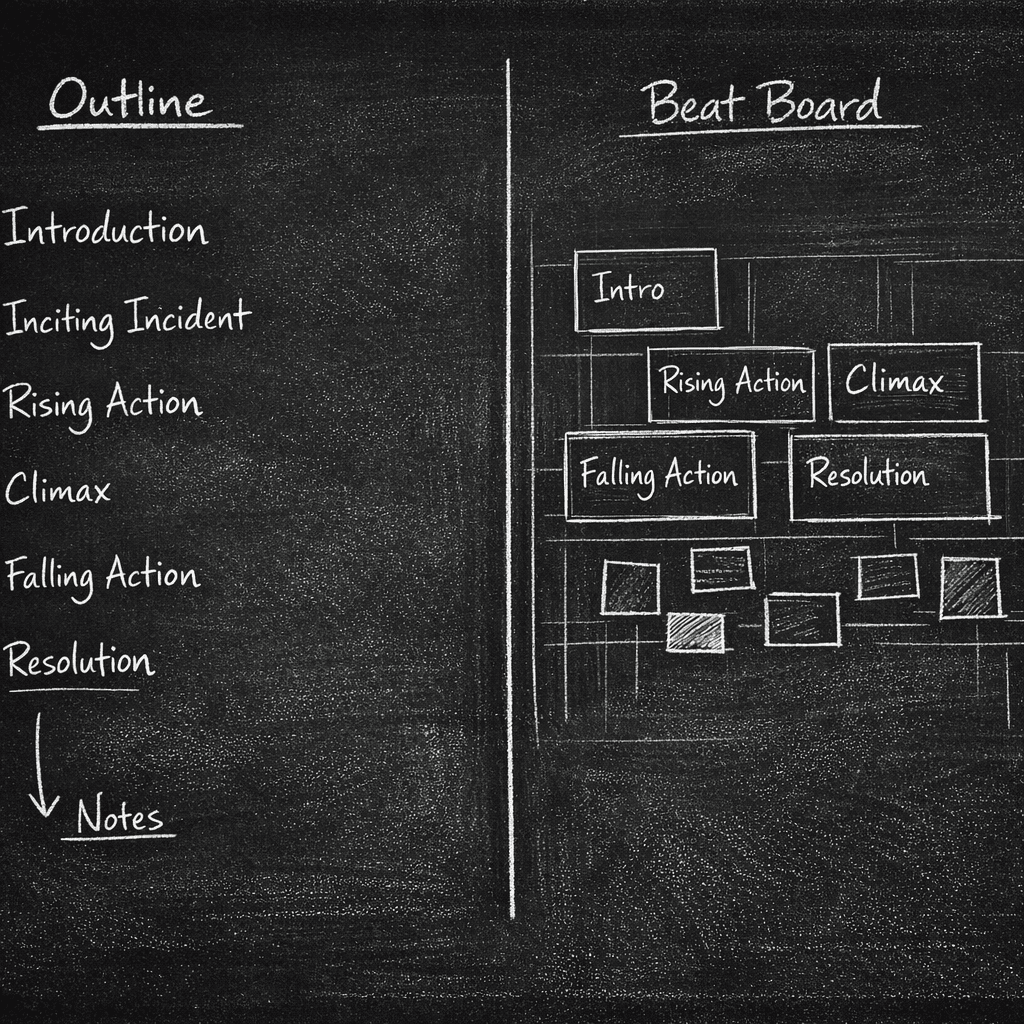 Outline
Introduction
Inciting Incident
Rising Action
Climax
Falling Action
Resolution
Notes
Beat Board
Intro
Rising Action
Climax
Falling Action
Resolution